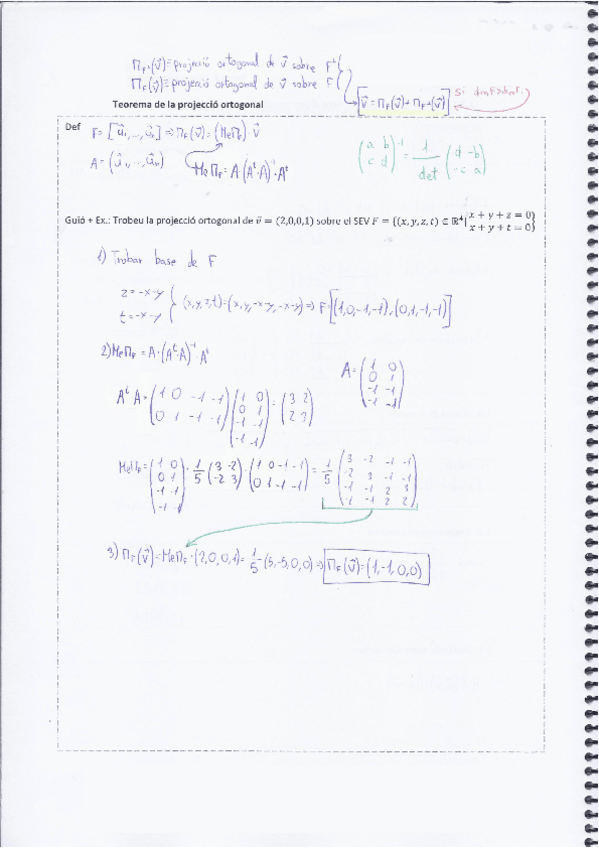 Π_F⊥(v⃗) = projecció ortogonal de v⃗ sobre F⊥
Π_F(v⃗) = projecció ortogonal de v⃗ sobre F
v⃗ = Π_F(v⃗) + Π_F⊥(v⃗)
Teorema de la projecció ortogonal
Def F = [u⃗₁, ..., u⃗ₙ] ⇒ Π_F(v⃗) = (MeΠ_F)·v⃗
A = (u⃗₁, ..., u⃗ₙ) MeΠ_F = A·(Aᵗ·A)⁻¹·Aᵗ
(a b; c d)⁻¹ = 1/det (d -b; -c a)
Guió + Ex.: Trobeu la projecció ortogonal de v⃗ = (2,0,0,1) sobre el SEV F = {(x, y, z, t) ∈ ℝ⁴| x + y + z = 0; x + y + t = 0}
1) Trobar base de F
z = -x-y
t = -x-y
(x,y,z,t) = (x,y,-x-y,-x-y) ⇒ F = [(1,0,-1,-1),(0,1,-1,-1)]
2) MeΠ_F = A·(Aᵗ·A)⁻¹·Aᵗ
A = (1 0; 0 1; -1 -1; -1 -1)
Aᵗ·A = (1 0 -1 -1; 0 1 -1 -1)(1 0; 0 1; -1 -1; -1 -1) = (3 2; 2 3)
MeΠ_F = (1 0; 0 1; -1 -1; -1 -1)·1/5 (3 -2; -2 3)·(1 0 -1 -1; 0 1 -1 -1) = 1/5 (3 -2 -1 -1; -2 3 -1 -1; -1 -1 2 2; -1 -1 2 2)
3) Π_F(v⃗) = MeΠ_F·(2,0,0,1) = 1/5·(5,-5,0,0) ⇒ Π_F(v⃗) = (1,-1,0,0)